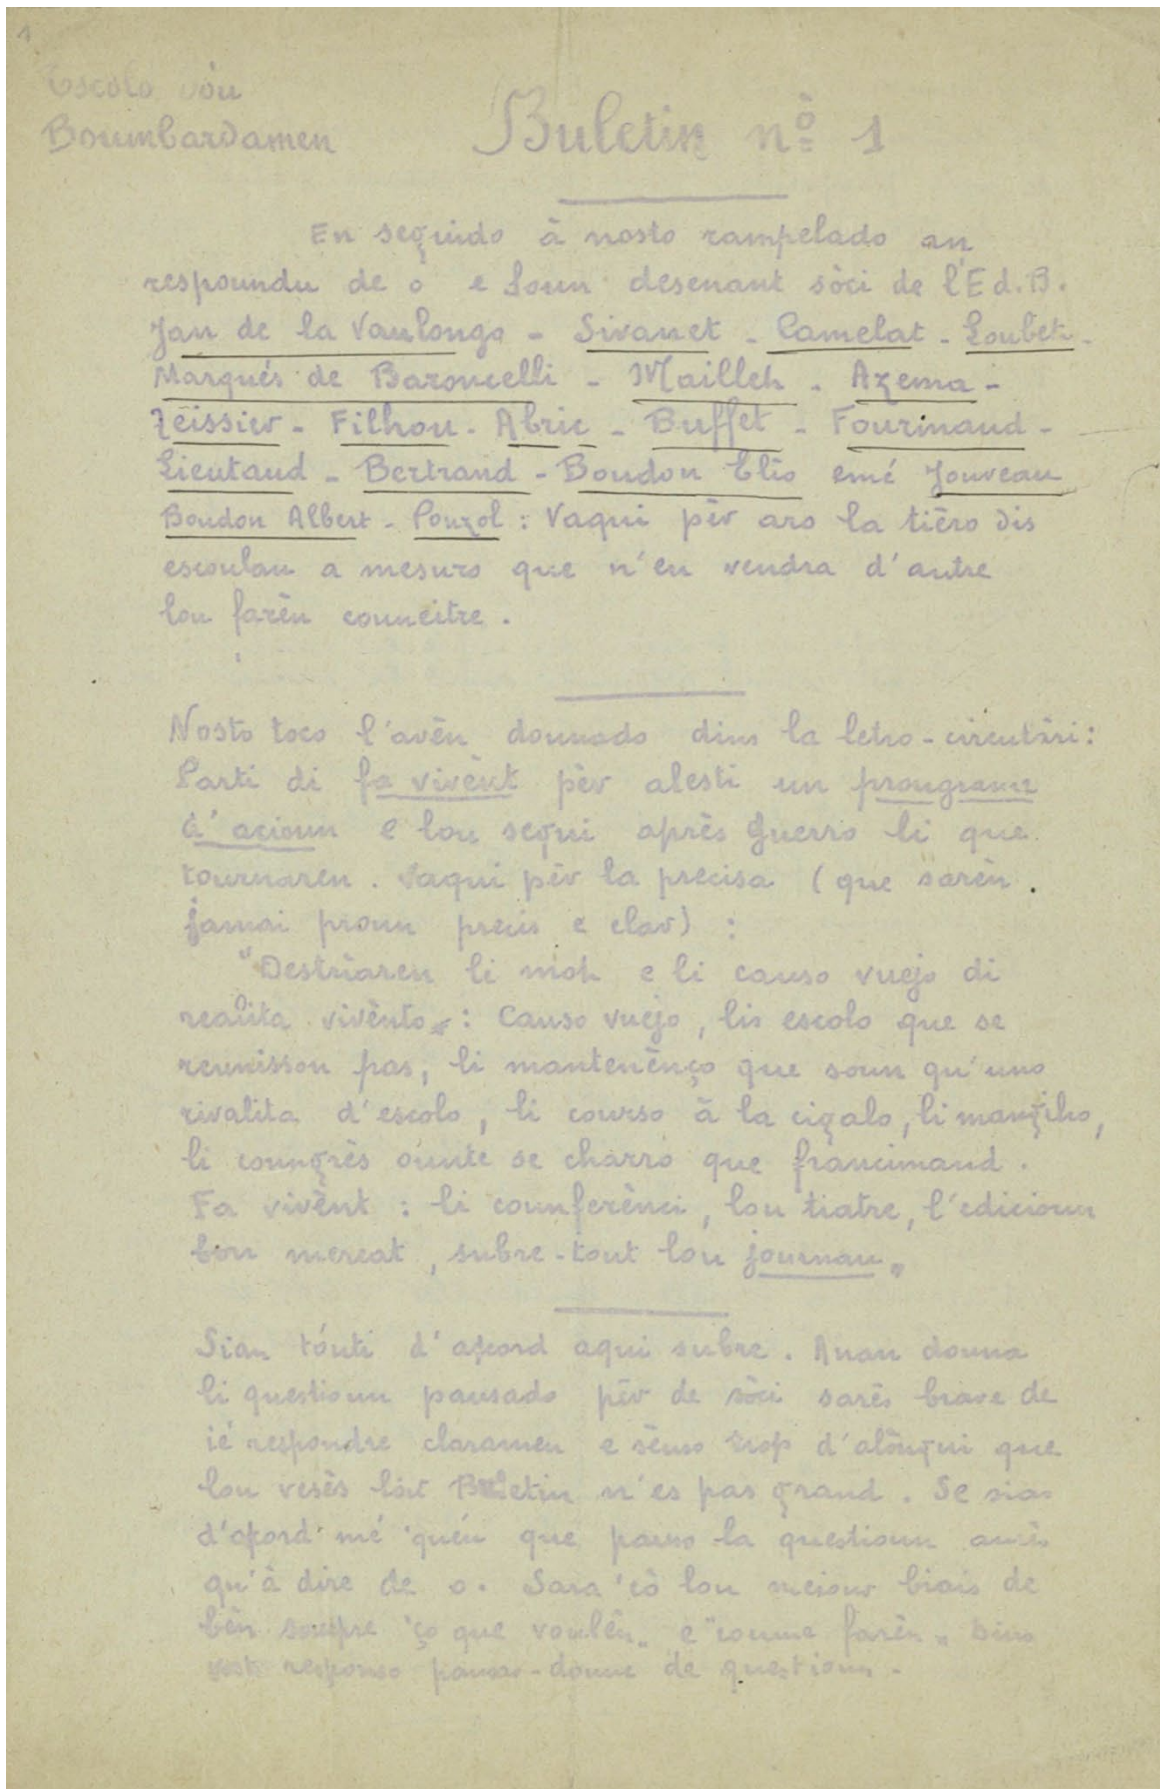 1
Escolo dóu
Boumbardamen
Buletin nº 1
En seguido à nosto rampelado an
respoundu de o e soun desenant sòci de l'E d. B.
Jan de la Vaulongo - Sivanet - Camelat - Loubet -
Marqués de Baroncelli - Mailleh - Azema -
Teissier - Filhou - Abric - Buffet - Fourinaud -
Lieutaud - Bertrand - Boudon Elio emé Jouveau
Boudon Albert - Pouzol : Vaqui pèr aro la tièro dis
escoulan a mesuro que n'en vendra d'autre
lou farèn couneitre .
Nosto toco l'avèn dounado dins la letro-circulàri :
Parti di fa vivènt pèr alesti un prougramo
d'acioun e lou segui après guerro li que
tournaren . Vaqui pèr la precisa ( que sarèn
jamai proun precis e clar) :
"Destriaren li mot e li causo vuejo di
realita vivènto„ : Causo vuejo , lis escolo que se
reunisson pas, li mantenènço que soun qu'uno
rivalita d'escolo , li courso à la cigalo, li mangiho,
li coungrès ounte se charro que francimand .
Fa vivènt : li counferènci , lou tiatre, l'edicioun
bon mercat , subre-tout lou journau„
Sian tóuti d'acord aqui subre . Anan douna
li questioun pausado pèr de sòci sarés brave de
ié respondre claramen e sènso trop d'alòngui que
lou vesès lou Buletin n'es pas grand . Se sias
d'acord mé 'quéu que pauso la questioun avès
qu'à dire de o. Sara 'cò lou meiour biais de
bèn saupre "ço que voulèn„ e "coume farèn„ Dins
vosto responso pausas-doune de questioun .